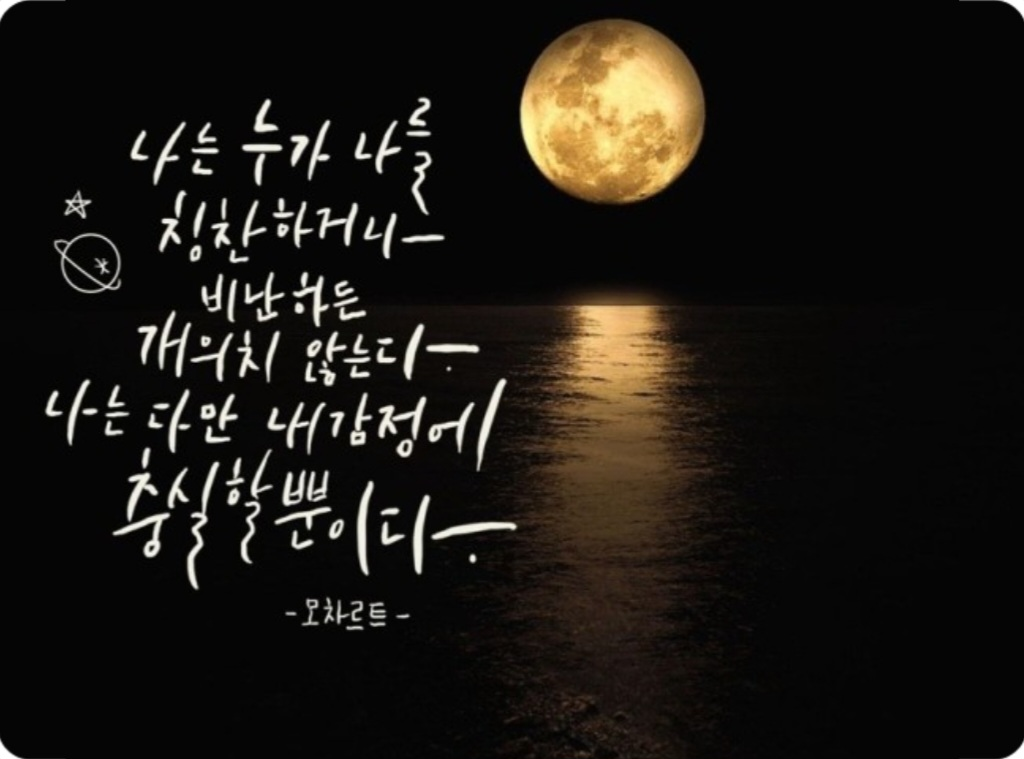 나는 누가 나를
칭찬하거나
비난하든
개의치 않는다.
나는 다만 내 감정에
충실할 뿐이다.
-모차르트-